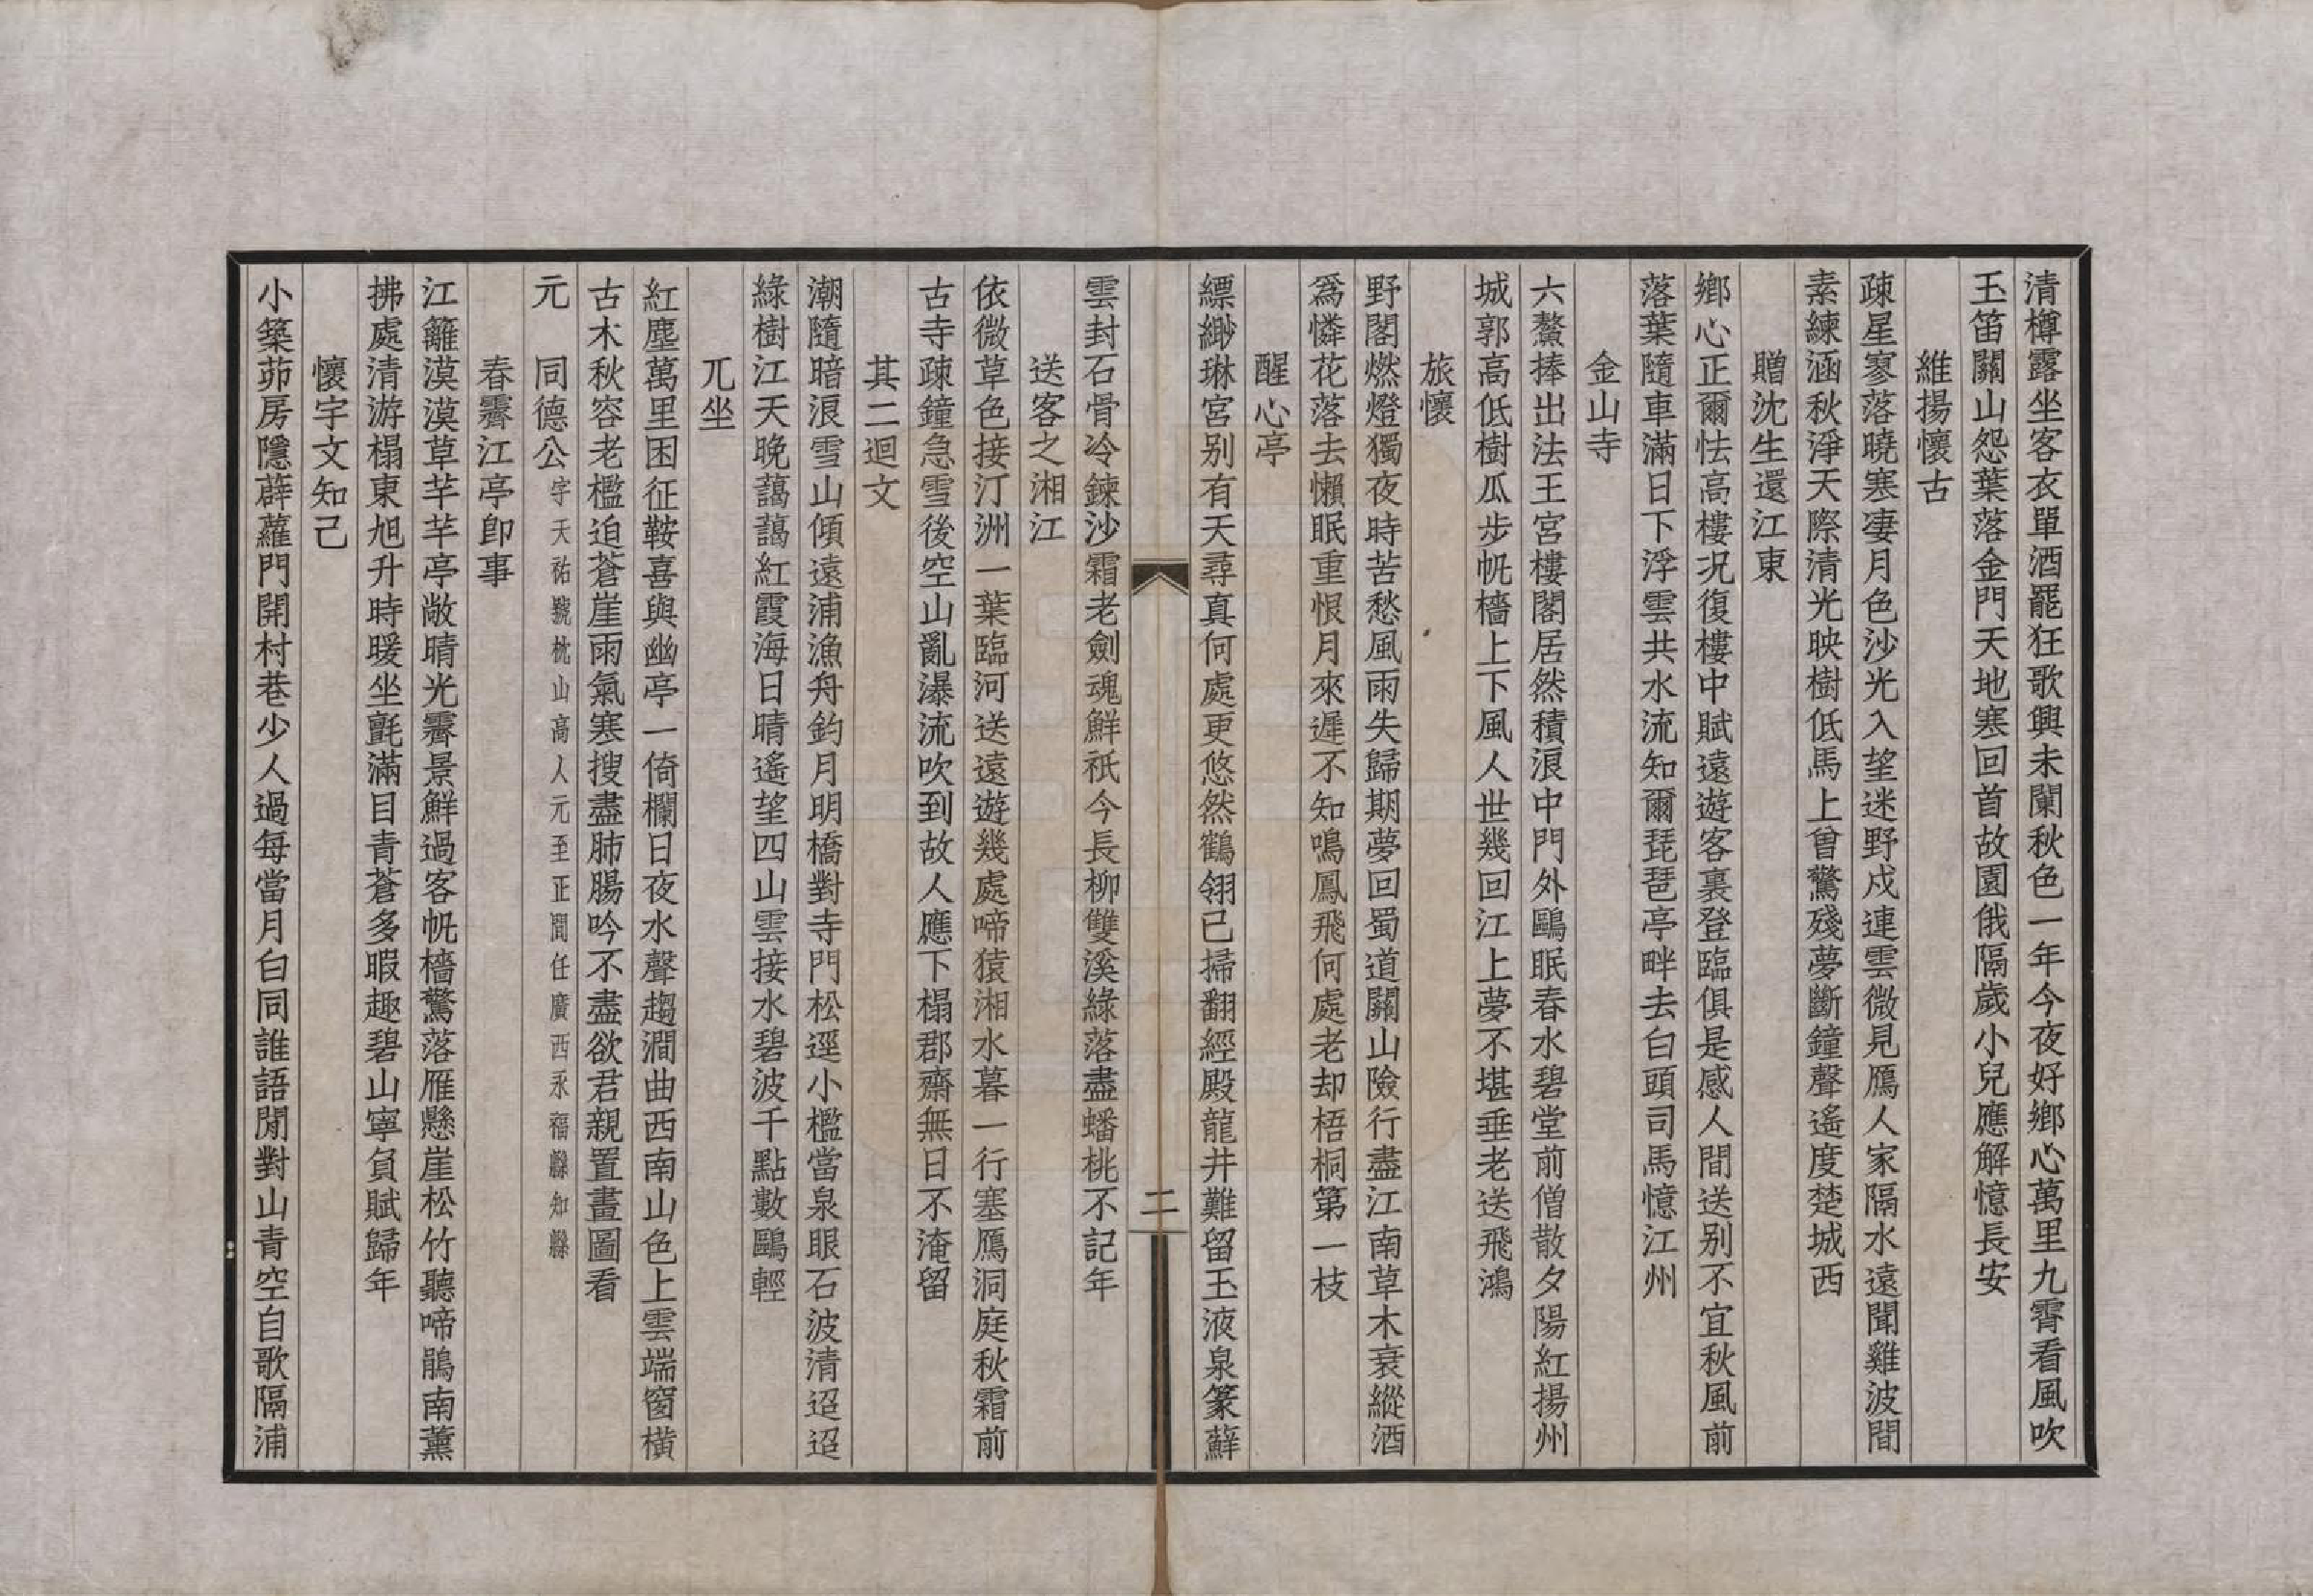 清樽露坐客衣單酒罷狂歌興未闌秋色一年今夜好鄉心萬里九霄看風吹
玉笛關山怨葉落金門天地寒回首故園俄隔歲小兒應解憶長安
維揚懷古
疎星寥落曉寒凄月色沙光入望迷野戍連雲微見鴈人家隔水遠聞雞波間
素練涵秋淨天際清光映樹低馬上曾驚殘夢斷鐘聲遙度楚城西
贈沈生還江東
鄉心正爾怯高樓况復樓中賦遠遊客裏登臨俱是感人間送别不宜秋風前
落葉隨車滿日下浮雲共水流知爾琵琶亭畔去白頭司馬憶江州
金山寺
六鰲捧出法王宮樓閣居然積浪中門外鷗眠春水碧堂前僧散夕陽紅揚州
城郭高低樹瓜步帆檣上下風人世幾回江上夢不堪垂老送飛鴻
旅懷
野閣燃燈獨夜時苦愁風雨失歸期夢回蜀道關山險行盡江南草木衰縱酒
爲憐花落去懶眠重恨月來遲不知鳴鳳飛何處老却梧桐第一枝
醒心亭
縹緲琳宮别有天尋真何處更悠然鶴翎已掃翻經殿龍井難留玉液泉篆蘚
雲封石骨冷鍊沙霜老劍魂鮮祇今長柳雙溪綠落盡蟠桃不記年
二
送客之湘江
依微草色接汀洲一葉臨河送遠遊幾處啼猿湘水暮一行塞鴈洞庭秋霜前
古寺疎鐘急雪後空山亂瀑流吹到故人應下榻郡齋無日不淹留
其二迴文
潮隨暗浪雪山傾遠浦漁舟釣月明橋對寺門松逕小檻當泉眼石波清迢迢
綠樹江天晚藹藹紅霞海日晴遙望四山雲接水碧波千點數鷗輕
兀坐
紅塵萬里困征鞍喜與幽亭一倚欄日夜水聲趨澗曲西南山色上雲端窗橫
古木秋容老檻迫蒼崖雨氣寒搜盡肺腸吟不盡欲君親置畫圖看
元　同德公字天祐號枕山高人元至正間任廣西永福縣知縣
春霽江亭卽事
江籬漠漠草芊芊亭敞晴光霽景鮮過客帆檣驚落雁懸崖松竹聽啼鵑南薰
拂處清游榻東旭升時暖坐氈滿目青蒼多暇趣碧山寧負賦歸年
懷宇文知己
小築茆房隱薜蘿門開村巷少人過每當月白同誰語閒對山青空自歌隔浦